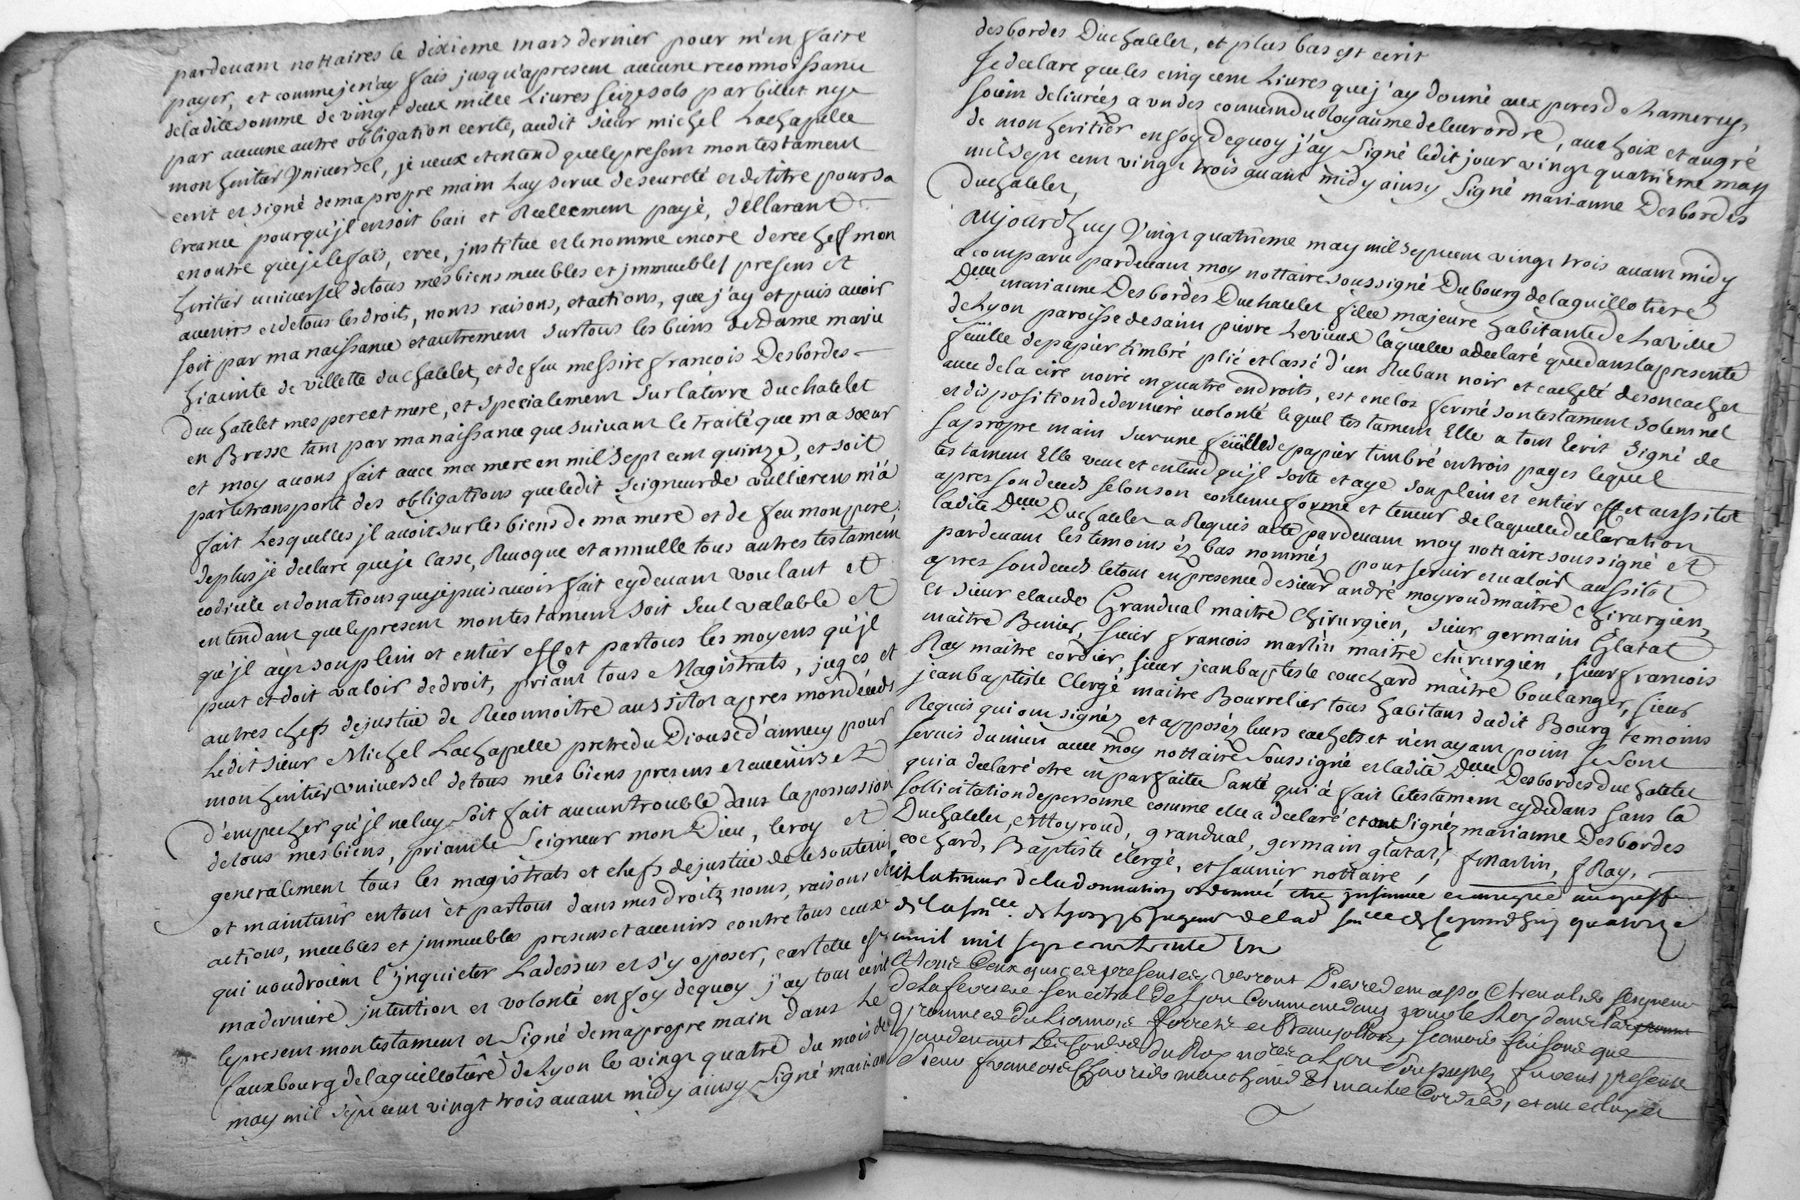 pardevant nottaires le dixieme mars dernier pour m'en faire
payer, et comme je n'ay fais jusqu'apresent aucune reconnoissance
deladite somme de vingt deux mille Livres seize sols par billet ny
par aucune autre obligation ecrite, audit sieur michel Lachapelle
mon heritier Vniversel, je veux et entend que le present mon testament
ecrit et signé de ma propre main Luy serve de seureté et de titre pour sa
creance pour qu'jl en soit bien et Reellement payé, declarant
en outre que je le fais, cree, jnstitue et le nomme encore derechef mon
heritier universel de tous mes biens meubles et jmmeubles presens et
avenirs et de tous les droits, noms raisons, et actions, que j'ay et puis avoir
soit par ma naissance et autrement sur tous les biens de Dame marie
hiacinte de villette du chatelet, et de feu messire francois Desbordes
Duchatelet mes pere et mere, et specialement sur la terre duchatelet
en Bresse tant par ma naissance que suivant le traité que ma soeur
et moy avons fait avec ma mere en mil sept cent quinze, et soit
par le transport des obligations que ledit seigneur de vullierens m'a
fait Lesquelles jl avoit sur les biens de ma mere et de feu mon pere,
de plus je declare que je Casse, Revoque et annulle tous autres testamens
codicile et donations que je puis avoir fait cy devant voulant et
entendant que le present mon testament soit seul valable et
qu'jl aye son plein et entier effet par tous les moyens qu'jl
peut et doit valoir de droit, priant tous Magistrats, juges et
autres chefs de justice de Reconnoitre aussitot apres mon décéds
Ledit sieur Michel Lachapelle pretre du Diocése d'annecy pour
mon heritier Vniversel de tous mes biens presens et avenirs et
d'empecher qu'jl ne luy soit fait aucun trouble dans la possession
de tous mes biens, priant le Seigneur mon Dieu, le roy et
generalement tous les magistrats et chefs de justice de le soutenir
et maintenir en tout et partout dans mes droits, noms, raisons et
actions, meubles et jmmeubles presens et avenirs contre tous ceux
qui voudroient l'jnquieter Ladessus et s'y oposer, car telle est
ma derniere jntention et volonté en foy de quoy j'ay tout ecrit
le present mon testament et Signé de ma propre main dans le
fauxbourg de la guillotiere de Lyon le vingt quatre du mois de
may mil sept cent vingt trois avant midy ainsy Signé marianne
desbordes Duchatelet, et plus bas est ecrit
Je declare que les cinq cent Livres que j'ay donné aux peres de Lamercy,
soient delivrées a vn des couvent du Royaume de leur ordre, au choix et augré
de mon heritier en foy de quoy j'ay Signé ledit jour vingt quatrieme may
mil sept cent vingt trois avant midy ainsy Signé marianne Desbordes
Duchatelet,
Aujourd'huy Vingt quatrieme may mil sept cent vingt trois avant midy
a comparu pardevant moy nottaire soussigné Dubourg de la guillotiere
Delle marianne Desbordes Duchatelet fille majeure habitante de La ville
de Lyon paroisse de saint pierre Levieux laquelle a declaré que dans la presente
feüille de papier timbré plié et lassé d'un Ruban noir et cacheté de son cachet
avec de la cire noire en quatre endroits, est enclos fermé son testament solemnel
et disposition de derniere volonté lequel testament Elle a tout Ecrit Signé de
sa propre main sur une feüille de papier timbré en trois pages lequel
testament Elle veut et entend qu'jl sorte et aye son plein et entier effet aussitot
apres son deceds selon son contenu forme et teneur de laquelle declaration
ladite Delle Duchatelet a Requis acte pardevant moy nottaire soussigné et
pardevant les temoins és bas nommés pour servir et valoir aussitot
apres son deceds le tout en presence de sieur andré moyroud maitre chirurgien,
et sieur claude Grandual maitre Chirurgien, sieur germain Glatat
maitre Benier, sieur francois martin maitre chirurgien, sieur francois
Ray maitre cordier, sieur jean baptiste couchard maitre boulanger, sieur
jean baptiste Clergé maitre Bourrelier tous habitans dudit Bourg temoins
Requis qui ont signéz et apposéz leurs cachets et n'en ayant point se sont
servis du mien avec moy nottaire soussigné et ladite Delle Desbordes Duchatelet
qui a declaré etre en parfaitte Santé qui a fait le testament cydedans sans la
sollicitation de personne comme elle a declaré et ont Signéz marianne Desbordes
Duchatelet, Moyroud, grandual, germain glatat, f Martin, f Ray,
cochard, Baptiste clergé, et saunier nottaire
de la donnation ordonné etre jnsinuée enregistrée au greffe
quatorze
avril mil sept cent trente un
A tous Ceux qui ces presentes verront Pierre de masso Chevalier seigneur
de la ferriere senechal de Lyon Commandant pour le Roy dans la
province du Lionnois forrest et Beaujollois, scavoir faisons que
pardevant Les Con.ers du Roy no.res a Lyon soussignez furent presens
sieur francois marchand et maitre